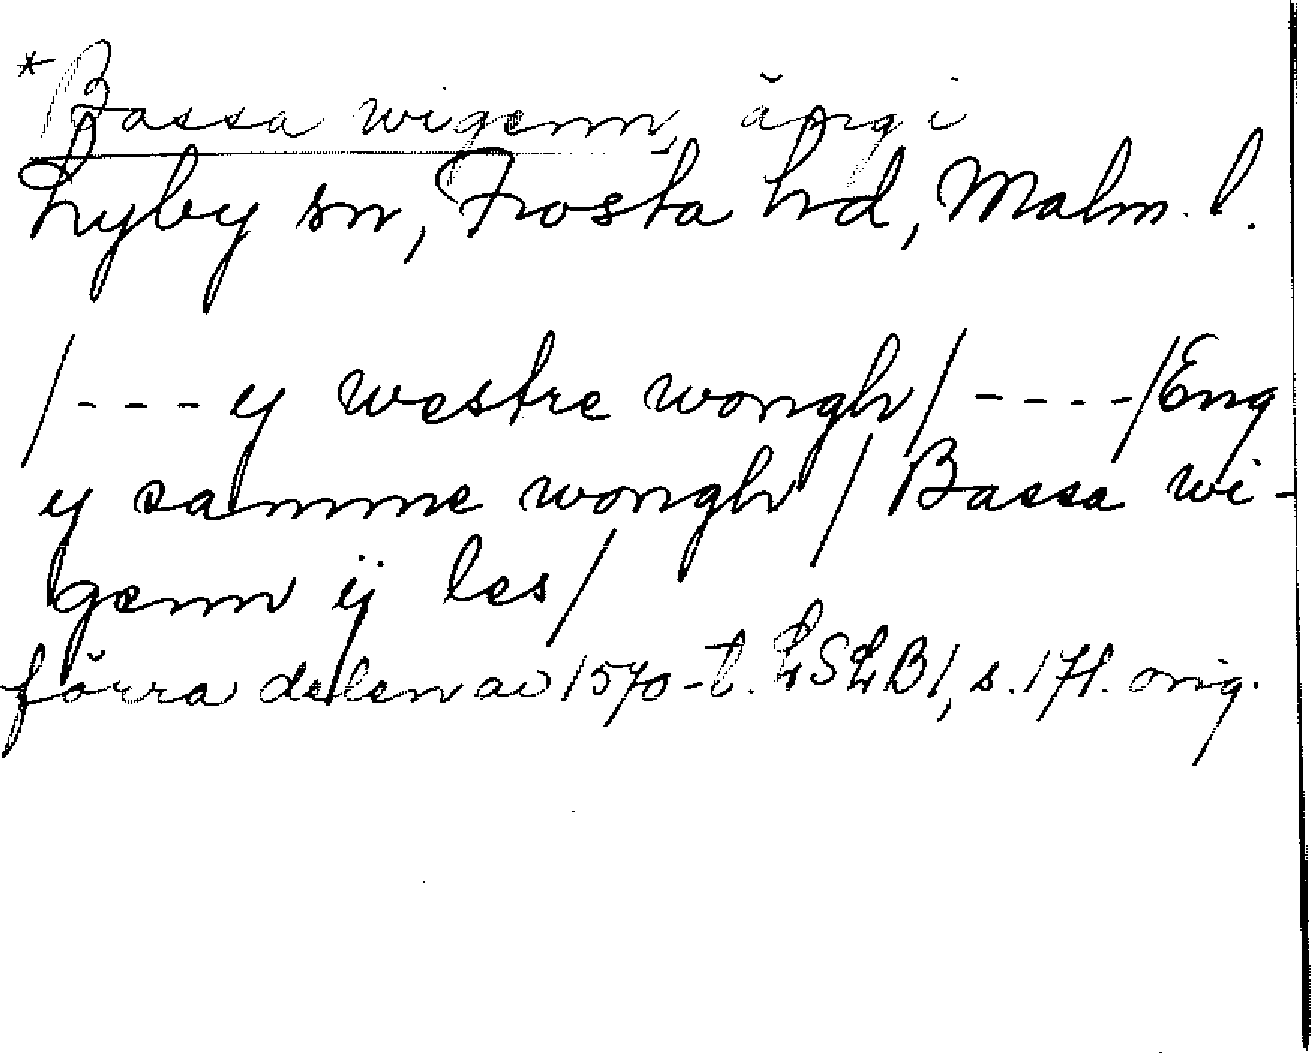 *Bassa wigenn, äng i
Lyby sn, Frosta hd, Malm. l.
/---y westre wongh/----/Eng
y samme wongh / Bassa wi-
genn ij les/
förra delen av 1570-t. LSLB1, s. 171. orig.